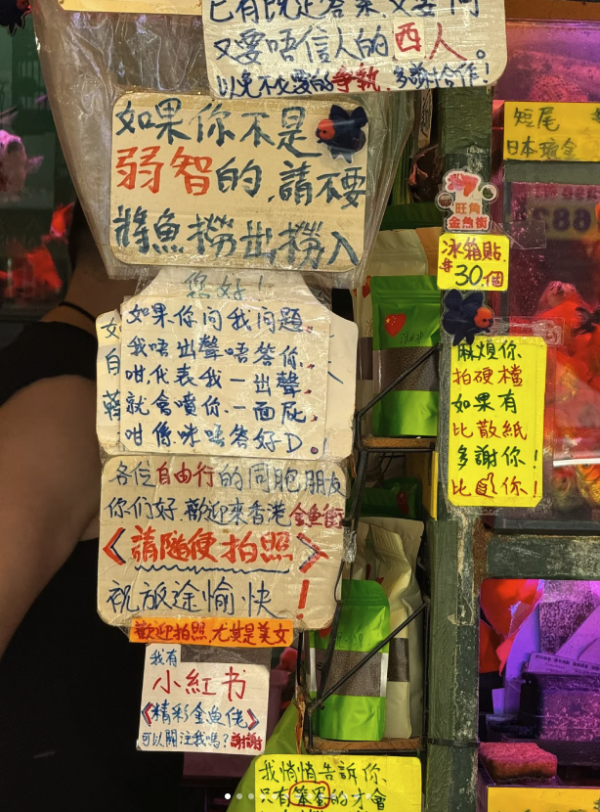 已有既定答案,又要問
又要唔信人的,西人。
以免不必要的爭執,多謝合作!
如果你不是
弱智的,請不要
將魚撈出撈入
您好!
如果你問我問題。
我唔出聲唔答你。
咁代表我一出聲。
就會噴你一面屁。
咁你咪唔答好D。!
各位自由行的同胞朋友
你們好,歡迎來香港金魚街
《請隨便拍照》
祝旅途愉快!
歡迎拍照尤其是美女
我有
小紅书
《精彩金魚佬》
可以關注我嗎?謝謝
我悄悄告訴你
只有笨蛋的才會
短尾
日本琉金
旺角
金魚街
冰箱貼
$30.個
麻煩你
拍硬檔
如果有
比散紙
多謝你!
比the你!